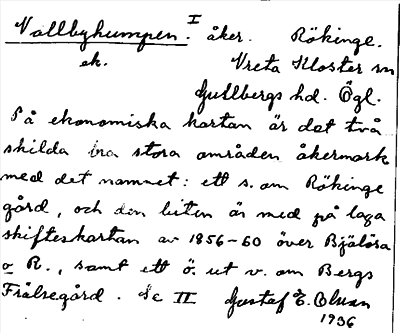 Vallbyhumpen. I åker. Rökinge.
ek. Vreta Kloster sn
Gullbergs hd. Ögl.
På ekonomiska kartan är det två
skilda bra stora områden åkermark
med det namnet: ett s. om Rökinge
gård, och den biten är med på laga
skifteskartan av 1856-60 över Bjälösa
o R., samt ett ö. ut v. om Bergs
Frälsegård. Se II Gustaf E. Olsson
1936